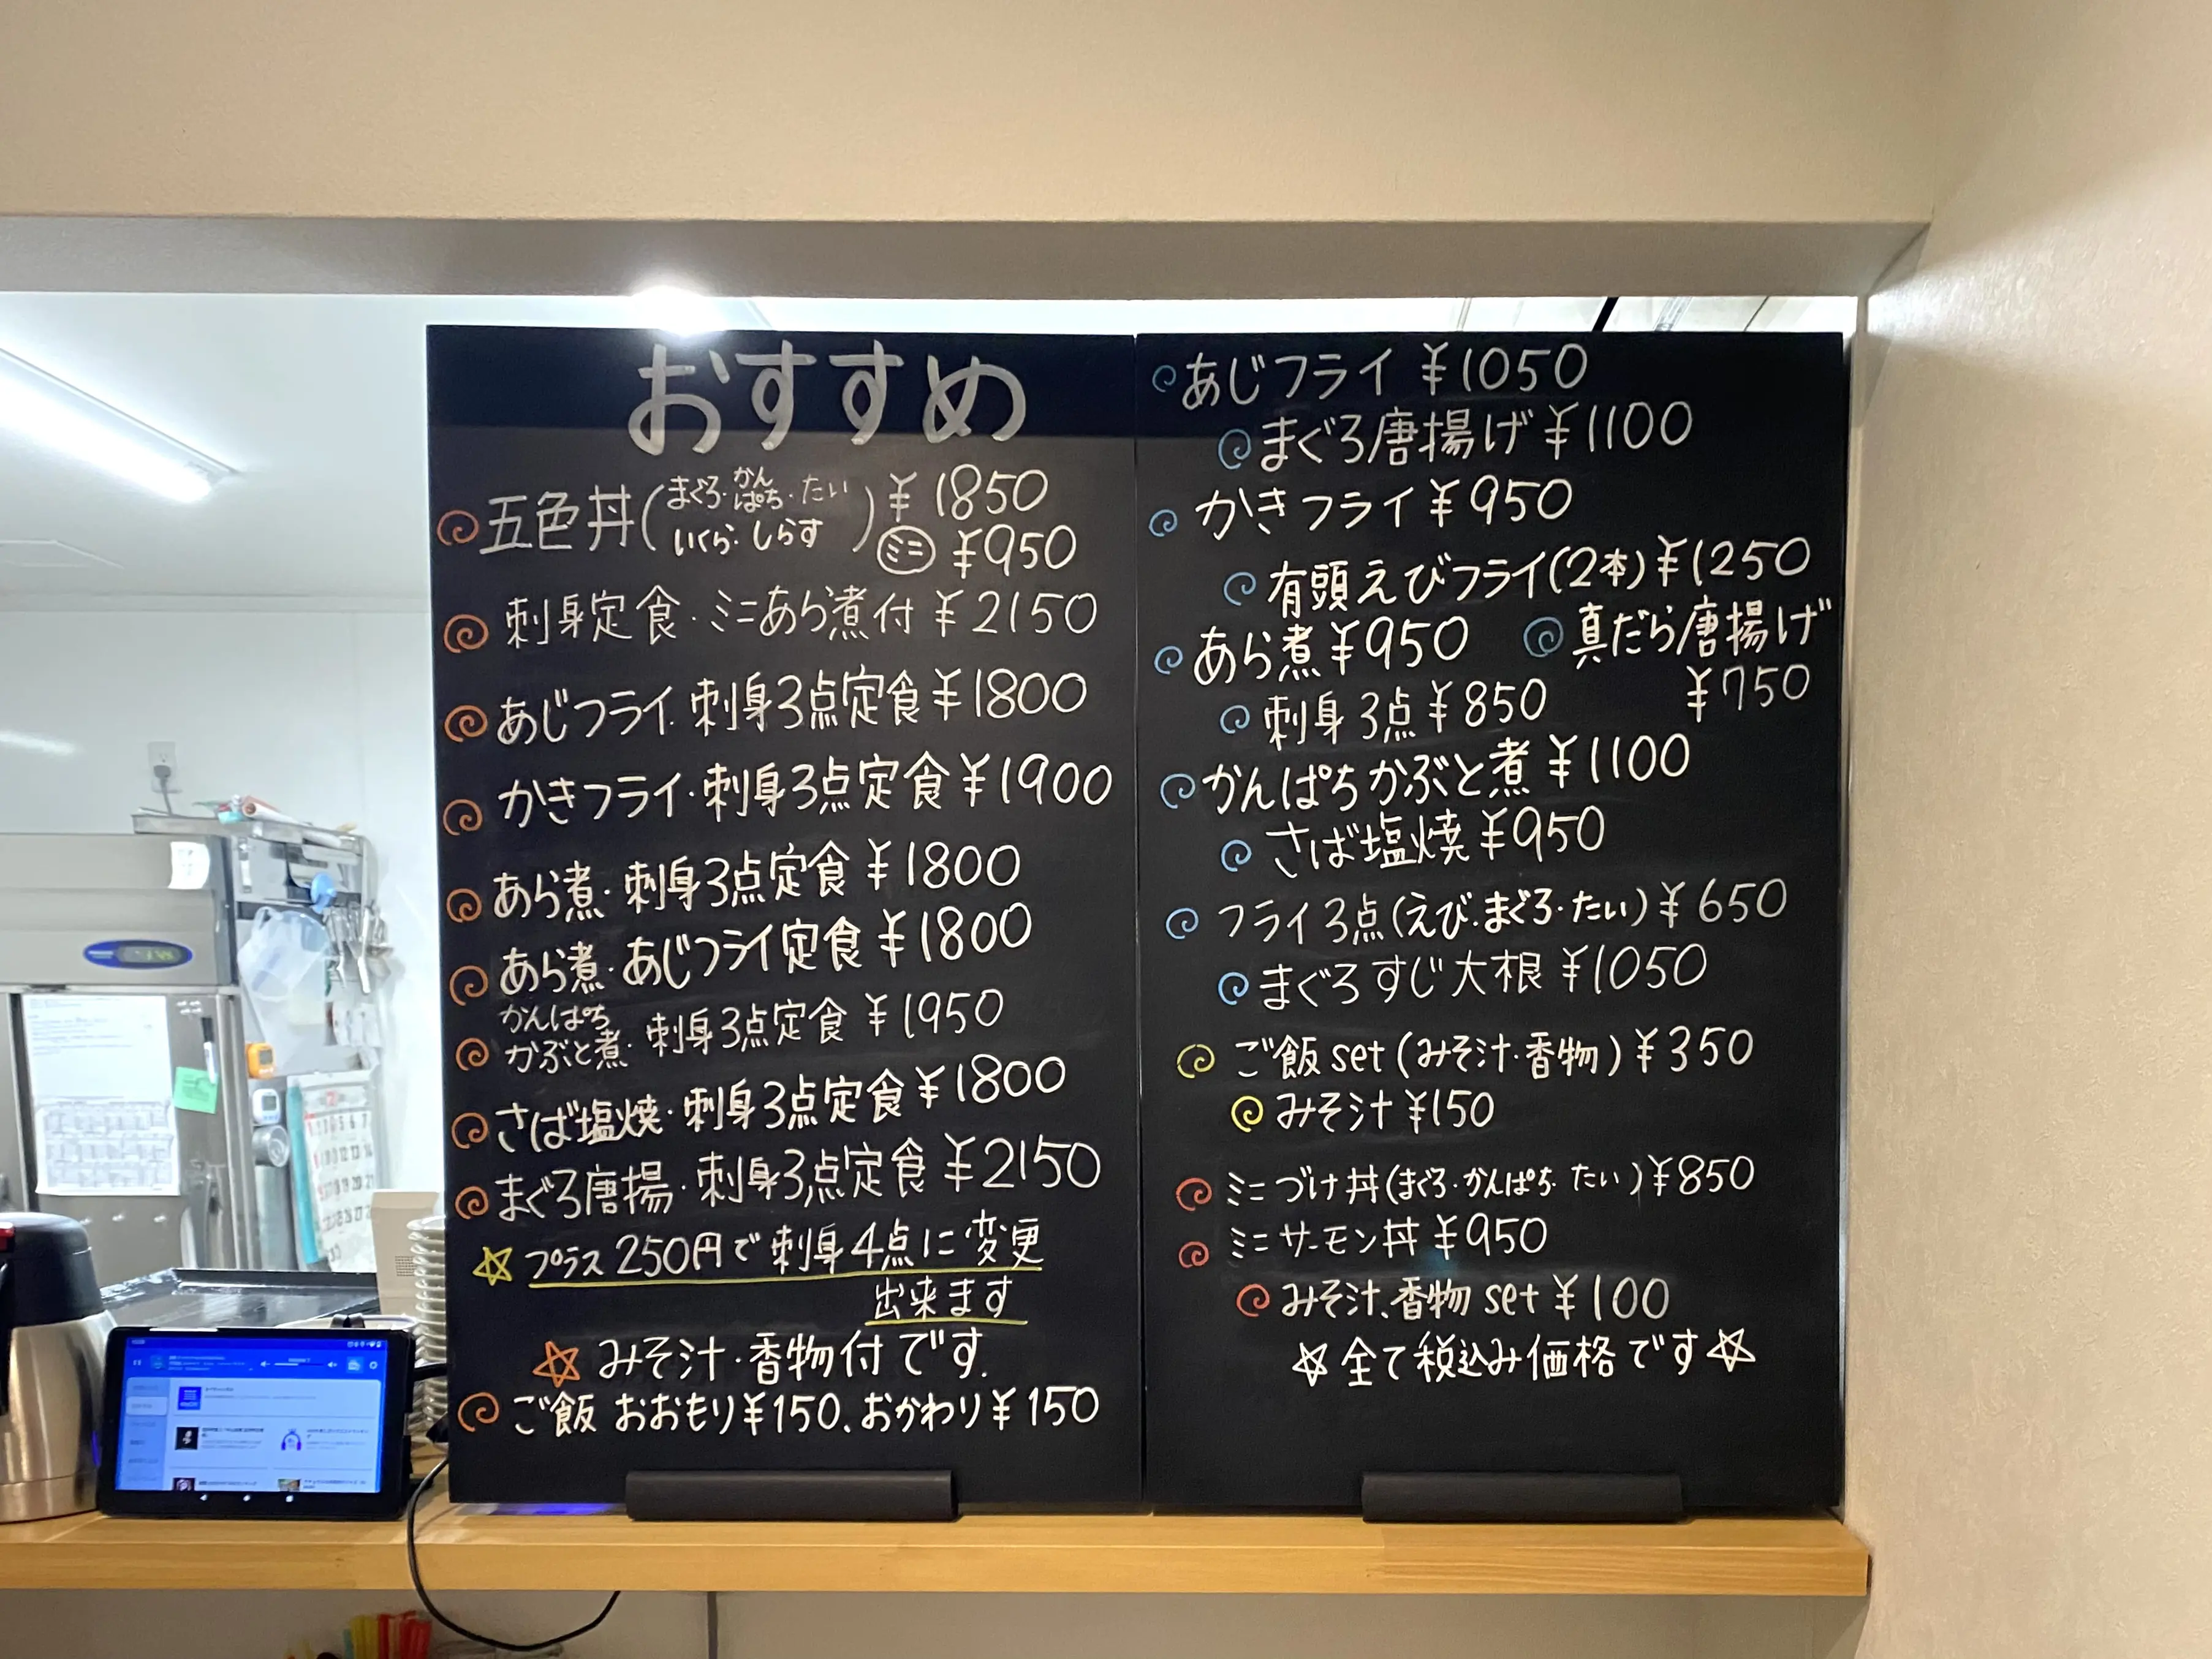 おすすめ
五色丼(まぐろ・かんぱち・たい いくら・しらす) ¥1850
ミニ ¥950
刺身定食・ミニあら煮付 ¥2150
あじフライ・刺身3点定食 ¥1800
かきフライ・刺身3点定食 ¥1900
あら煮・刺身3点定食 ¥1800
あら煮・あじフライ定食 ¥1800
かんぱち
かぶと煮・刺身3点定食 ¥1950
さば塩焼・刺身3点定食 ¥1800
まぐろ唐揚・刺身3点定食 ¥2150
☆ プラス250円で刺身4点に変更
出来ます
☆ みそ汁・香物付です.
ご飯 おおもり¥150、おかわり¥150
あじフライ ¥1050
まぐろ唐揚げ ¥1100
かきフライ ¥950
有頭えびフライ(2本) ¥1250
あら煮 ¥950
真だら唐揚げ
¥750
刺身3点 ¥850
かんぱちかぶと煮 ¥1100
さば塩焼 ¥950
フライ3点(えび・まぐろ・たい) ¥650
まぐろすじ大根 ¥1050
ご飯set(みそ汁・香物) ¥350
みそ汁 ¥150
ミニづけ丼(まぐろ・かんぱち・たい) ¥850
ミニサーモン丼 ¥950
みそ汁、香物set ¥100
☆全て税込み価格です☆